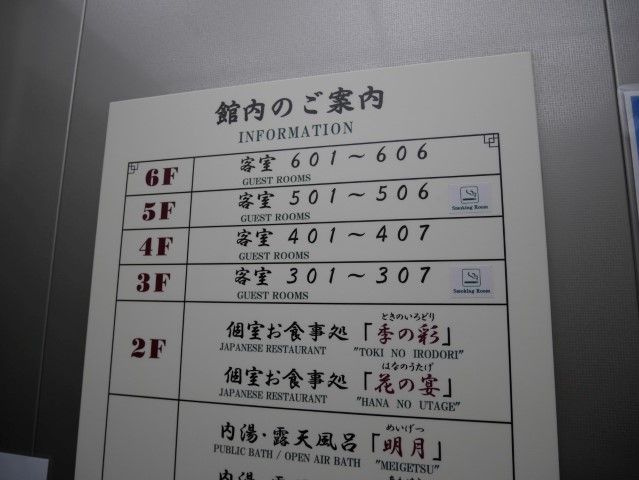 館内のご案内
INFORMATION
6F 客室 601～606
GUEST ROOMS
5F 客室 501～506
GUEST ROOMS
Smoking Room
4F 客室 401～407
GUEST ROOMS
3F 客室 301～307
GUEST ROOMS
Smoking Room
2F
ときのいろどり
個室お食事処「季の彩」
JAPANESE RESTAURANT "TOKI NO IRODORI"
はなのうたげ
個室お食事処「花の宴」
JAPANESE RESTAURANT "HANA NO UTAGE"
めいげつ
内湯・露天風呂「明月」
PUBLIC BATH / OPEN AIR BATH "MEIGETSU"